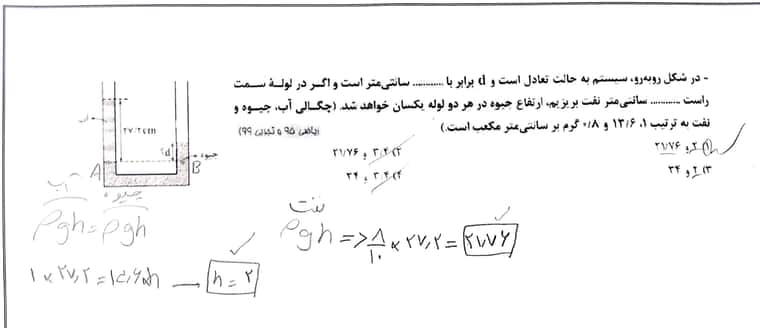 - در شکل روبه‌رو، سیستم به حالت تعادل است و d برابر با ........... سانتی‌متر است و اگر در لولهٔ سمت
راست ........... سانتی‌متر نفت بریزیم، ارتفاع جیوه در هر دو لوله یکسان خواهد شد. (چگالی آب، جیوه و
نفت به ترتیب ۱، ۱۳/۶ و ۰/۸ گرم بر سانتی‌متر مکعب است.) (ریاضی ۹۵ و تجربی ۹۹)
۱) ۲ و ۲۱/۷۶
۲) ۳/۴ و ۲۱/۷۶
۳) ۲ و ۳۴
۴) ۳/۴ و ۳۴
آب
۲۷/۲cm
d
جیوه
A
B
آب جیوه
ρgh = ρgh
۱ × ۲۷,۲ = ۱۳,۶ × h → h = ۲
نفت
ρgh => ۸/۱۰ × ۲۷,۲ = ۲۱,۷۶